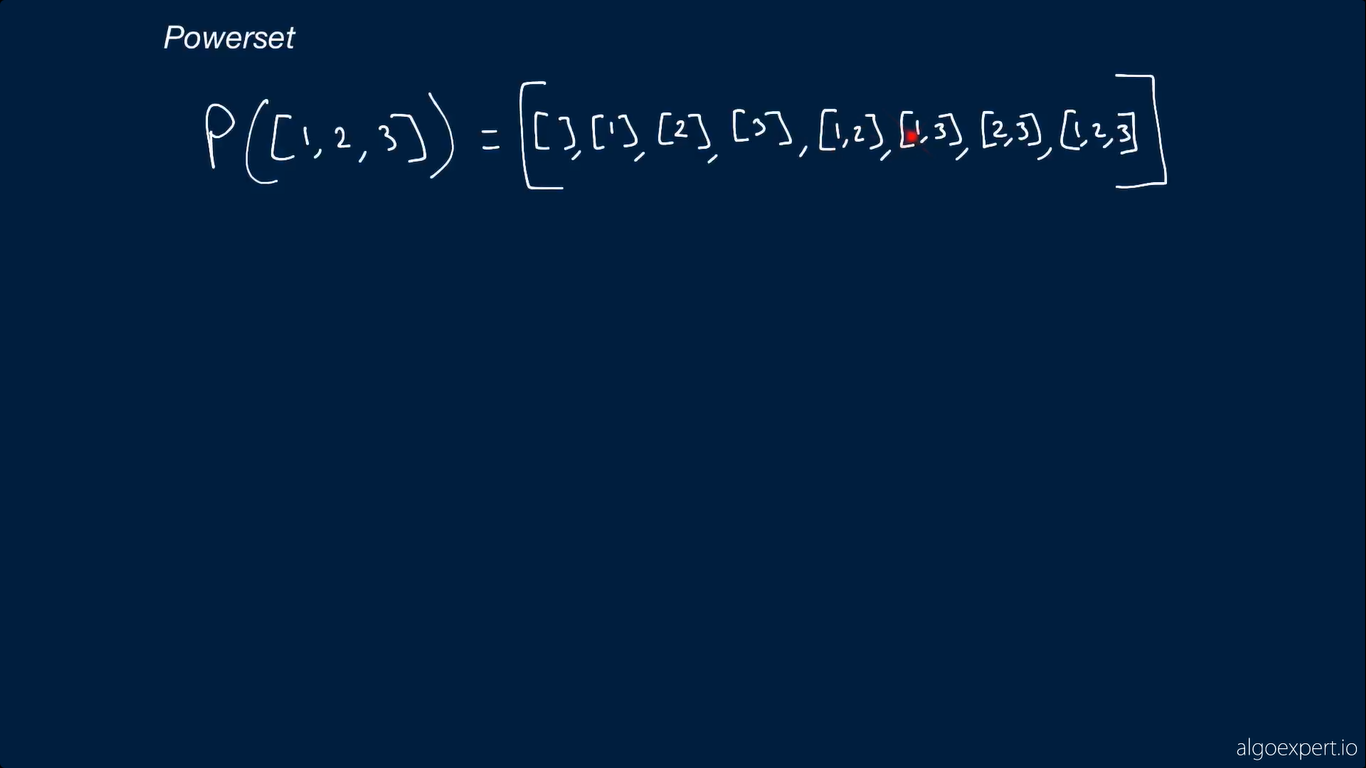 Powerset
P([1,2,3]) = [[],[1],[2],[3],[1,2],[1,3],[2,3],[1,2,3]]
algoexpert.io